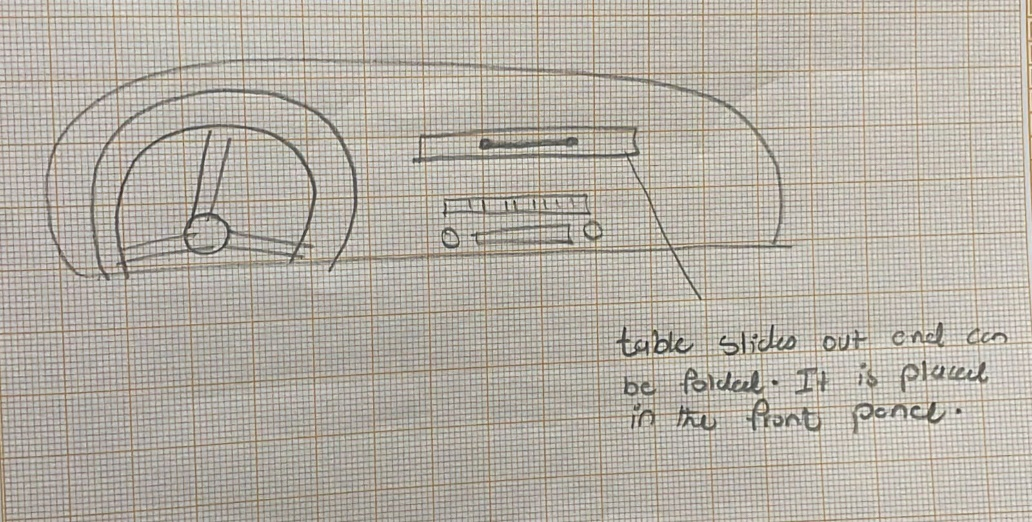 table slides out and can
be folded. It is placed
in the front panel.